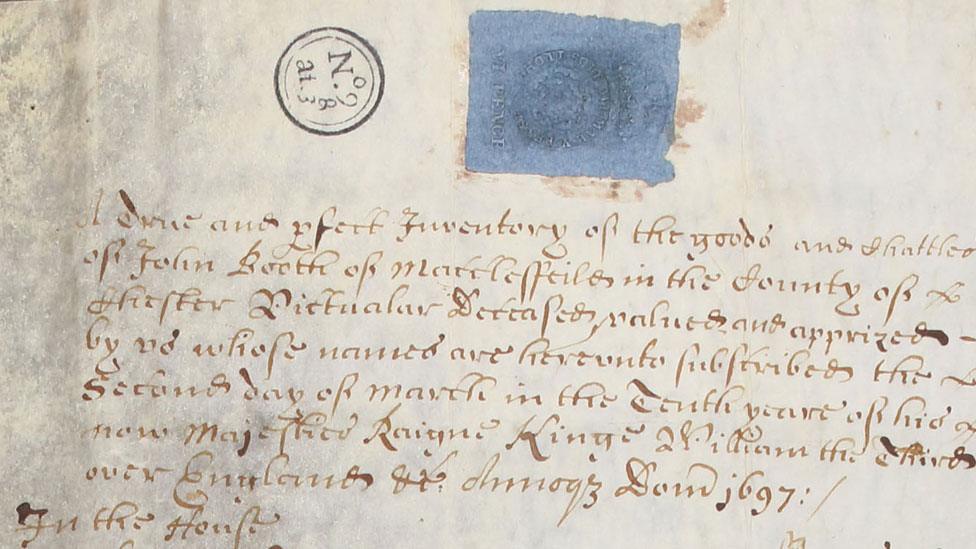 No
28
at. 3
VI PENCE
A True and pfect Inventory of the goods and Chattles
of John Booth of Macclesfeild in the County of
Chester Victualar Deceased, valued and apprized -
by vs whose names are herevnto subscribed the
Second day of March in the Tenth yeare of his
now Majesties Raigne Kinge William the Third
over England &c. Annoqz Dom 1697:/
In the House